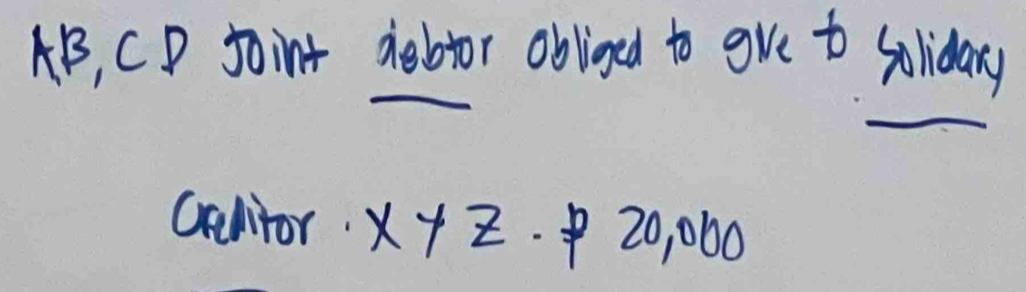 A,B, C D Joint debtor obliged to give to solidary
Creditor . X Y Z . ₱ 20,000